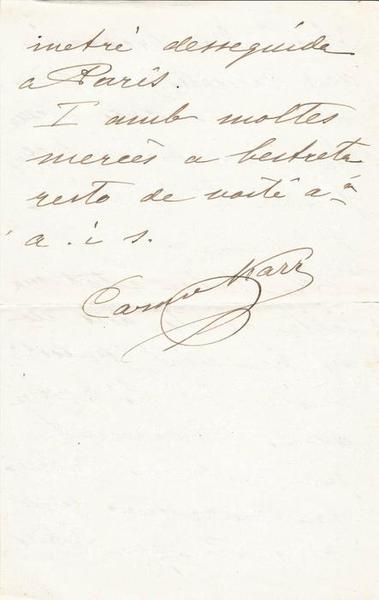 metré desseguida
a Paris.
I amb moltes
mercès a bestreta
resto de vostè a^a
a. i s.
Carme Karr